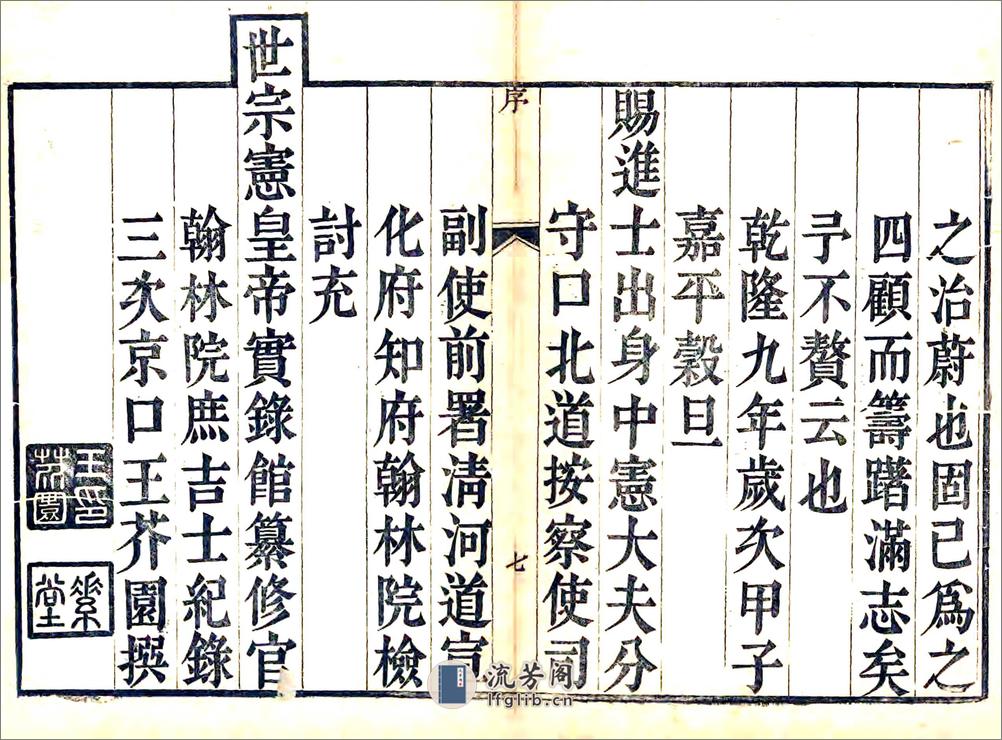 之治蔚也固已爲之
四顧而籌躇滿志矣
予不贅云也
乾隆九年歲次甲子
嘉平穀旦
賜進士出身中憲大夫分
守口北道按察使司
序
七
副使前署淸河道宣
化府知府翰林院檢
討充
世宗憲皇帝實錄館纂修官
翰林院庶吉士紀錄
三次京口王芥園撰
王印芥園
絫堂
流芳阁
lfglib.cn